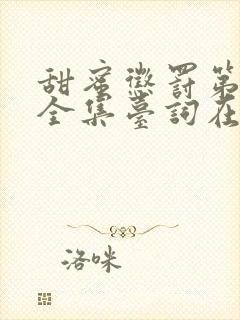 甜蜜懲罰第
全集臺詞在
洛咪